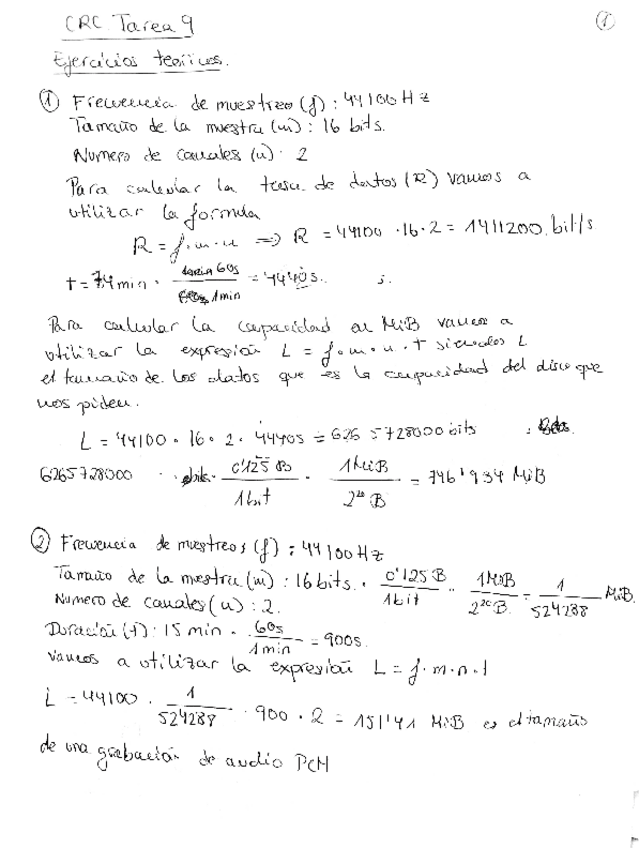 CRC Tarea 9
1
Ejercicios teóricos.
① Frecuencia de muestreo (f): 44100 Hz
Tamaño de la muestra (m): 16 bits.
Numero de canales (n): 2
Para calcular la tasa de datos (R) vamos a
utilizar la formula
R = f·m·n => R = 44100 · 16 · 2 = 1411200 bit/s
t = 74 min · 60s / 1 min = 4440s.
Para calcular la capacidad en MiB vamos a
utilizar la expresión L = f·m·n·t siendo L
el tamaño de los datos que es la capacidad del disco que
nos piden.
L = 44100 · 16 · 2 · 4440s = 6265728000 bits
6265728000 bits · 0'125 B / 1 bit · 1 MiB / 2^20 B = 746'934 MiB
② Frecuencia de muestreos (f): 44100 Hz
Tamaño de la mestra (m): 16 bits · 0'125 B / 1 bit · 1 MiB / 2^20 B = 1 / 524288 MiB.
Numero de canales (n): 2.
Duración (t): 15 min · 60s / 1 min = 900s.
vamos a utilizar la expresión L = f·m·n·t
L = 44100 · 1 / 524288 · 900 · 2 = 151'41 MiB es el tamaño
de una grabación de audio PCM